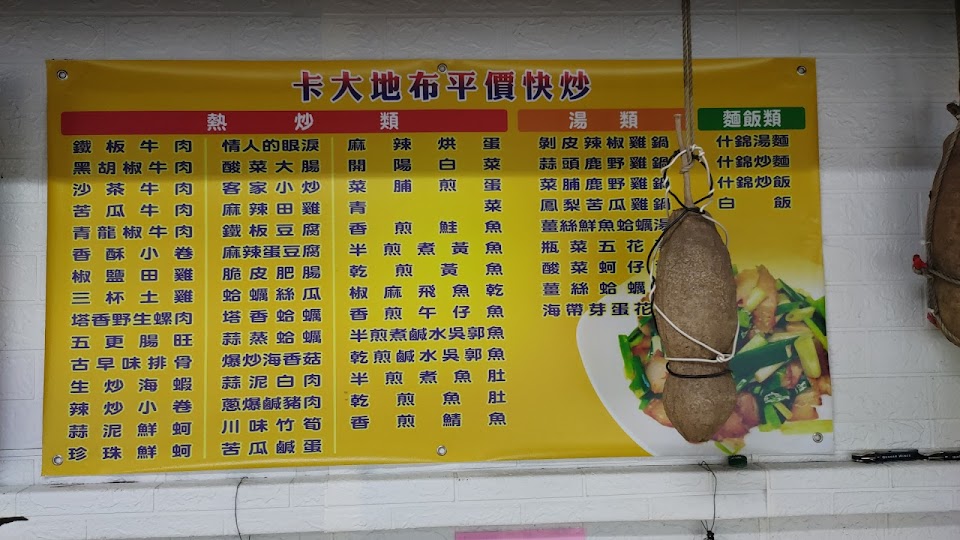 卡大地布平價快炒
熱炒類
鐵板牛肉
黑胡椒牛肉
沙茶牛肉
苦瓜牛肉
青龍椒牛肉
香酥小卷
椒鹽田雞
三杯土雞
塔香野生螺肉
五更腸旺
古早味排骨
生炒海蝦
辣炒小卷
蒜泥鮮蚵
珍珠鮮蚵
情人的眼淚
酸菜大腸
客家小炒
麻辣田雞
鐵板豆腐
麻辣蛋豆腐
脆皮肥腸
蛤蠣絲瓜
塔香蛤蠣
蒜蒸蛤蠣
爆炒海香菇
蒜泥白肉
蔥爆鹹豬肉
川味竹筍
苦瓜鹹蛋
麻辣烘蛋
開陽白菜
菜脯煎蛋
青菜
香煎鮭魚
半煎煮黃魚
乾煎黃魚
椒麻飛魚乾
香煎午仔魚
半煎煮鹹水吳郭魚
乾煎鹹水吳郭魚
半煎煮魚肚
乾煎魚肚
香煎鯖魚
湯類
剝皮辣椒雞鍋
蒜頭鹿野雞鍋
菜脯鹿野雞鍋
鳳梨苦瓜雞鍋
薑絲鮮魚蛤蠣湯
瓶菜五花
酸菜蚵仔
薑絲蛤蠣
海帶芽蛋花
麵飯類
什錦湯麵
什錦炒麵
什錦炒飯
白飯